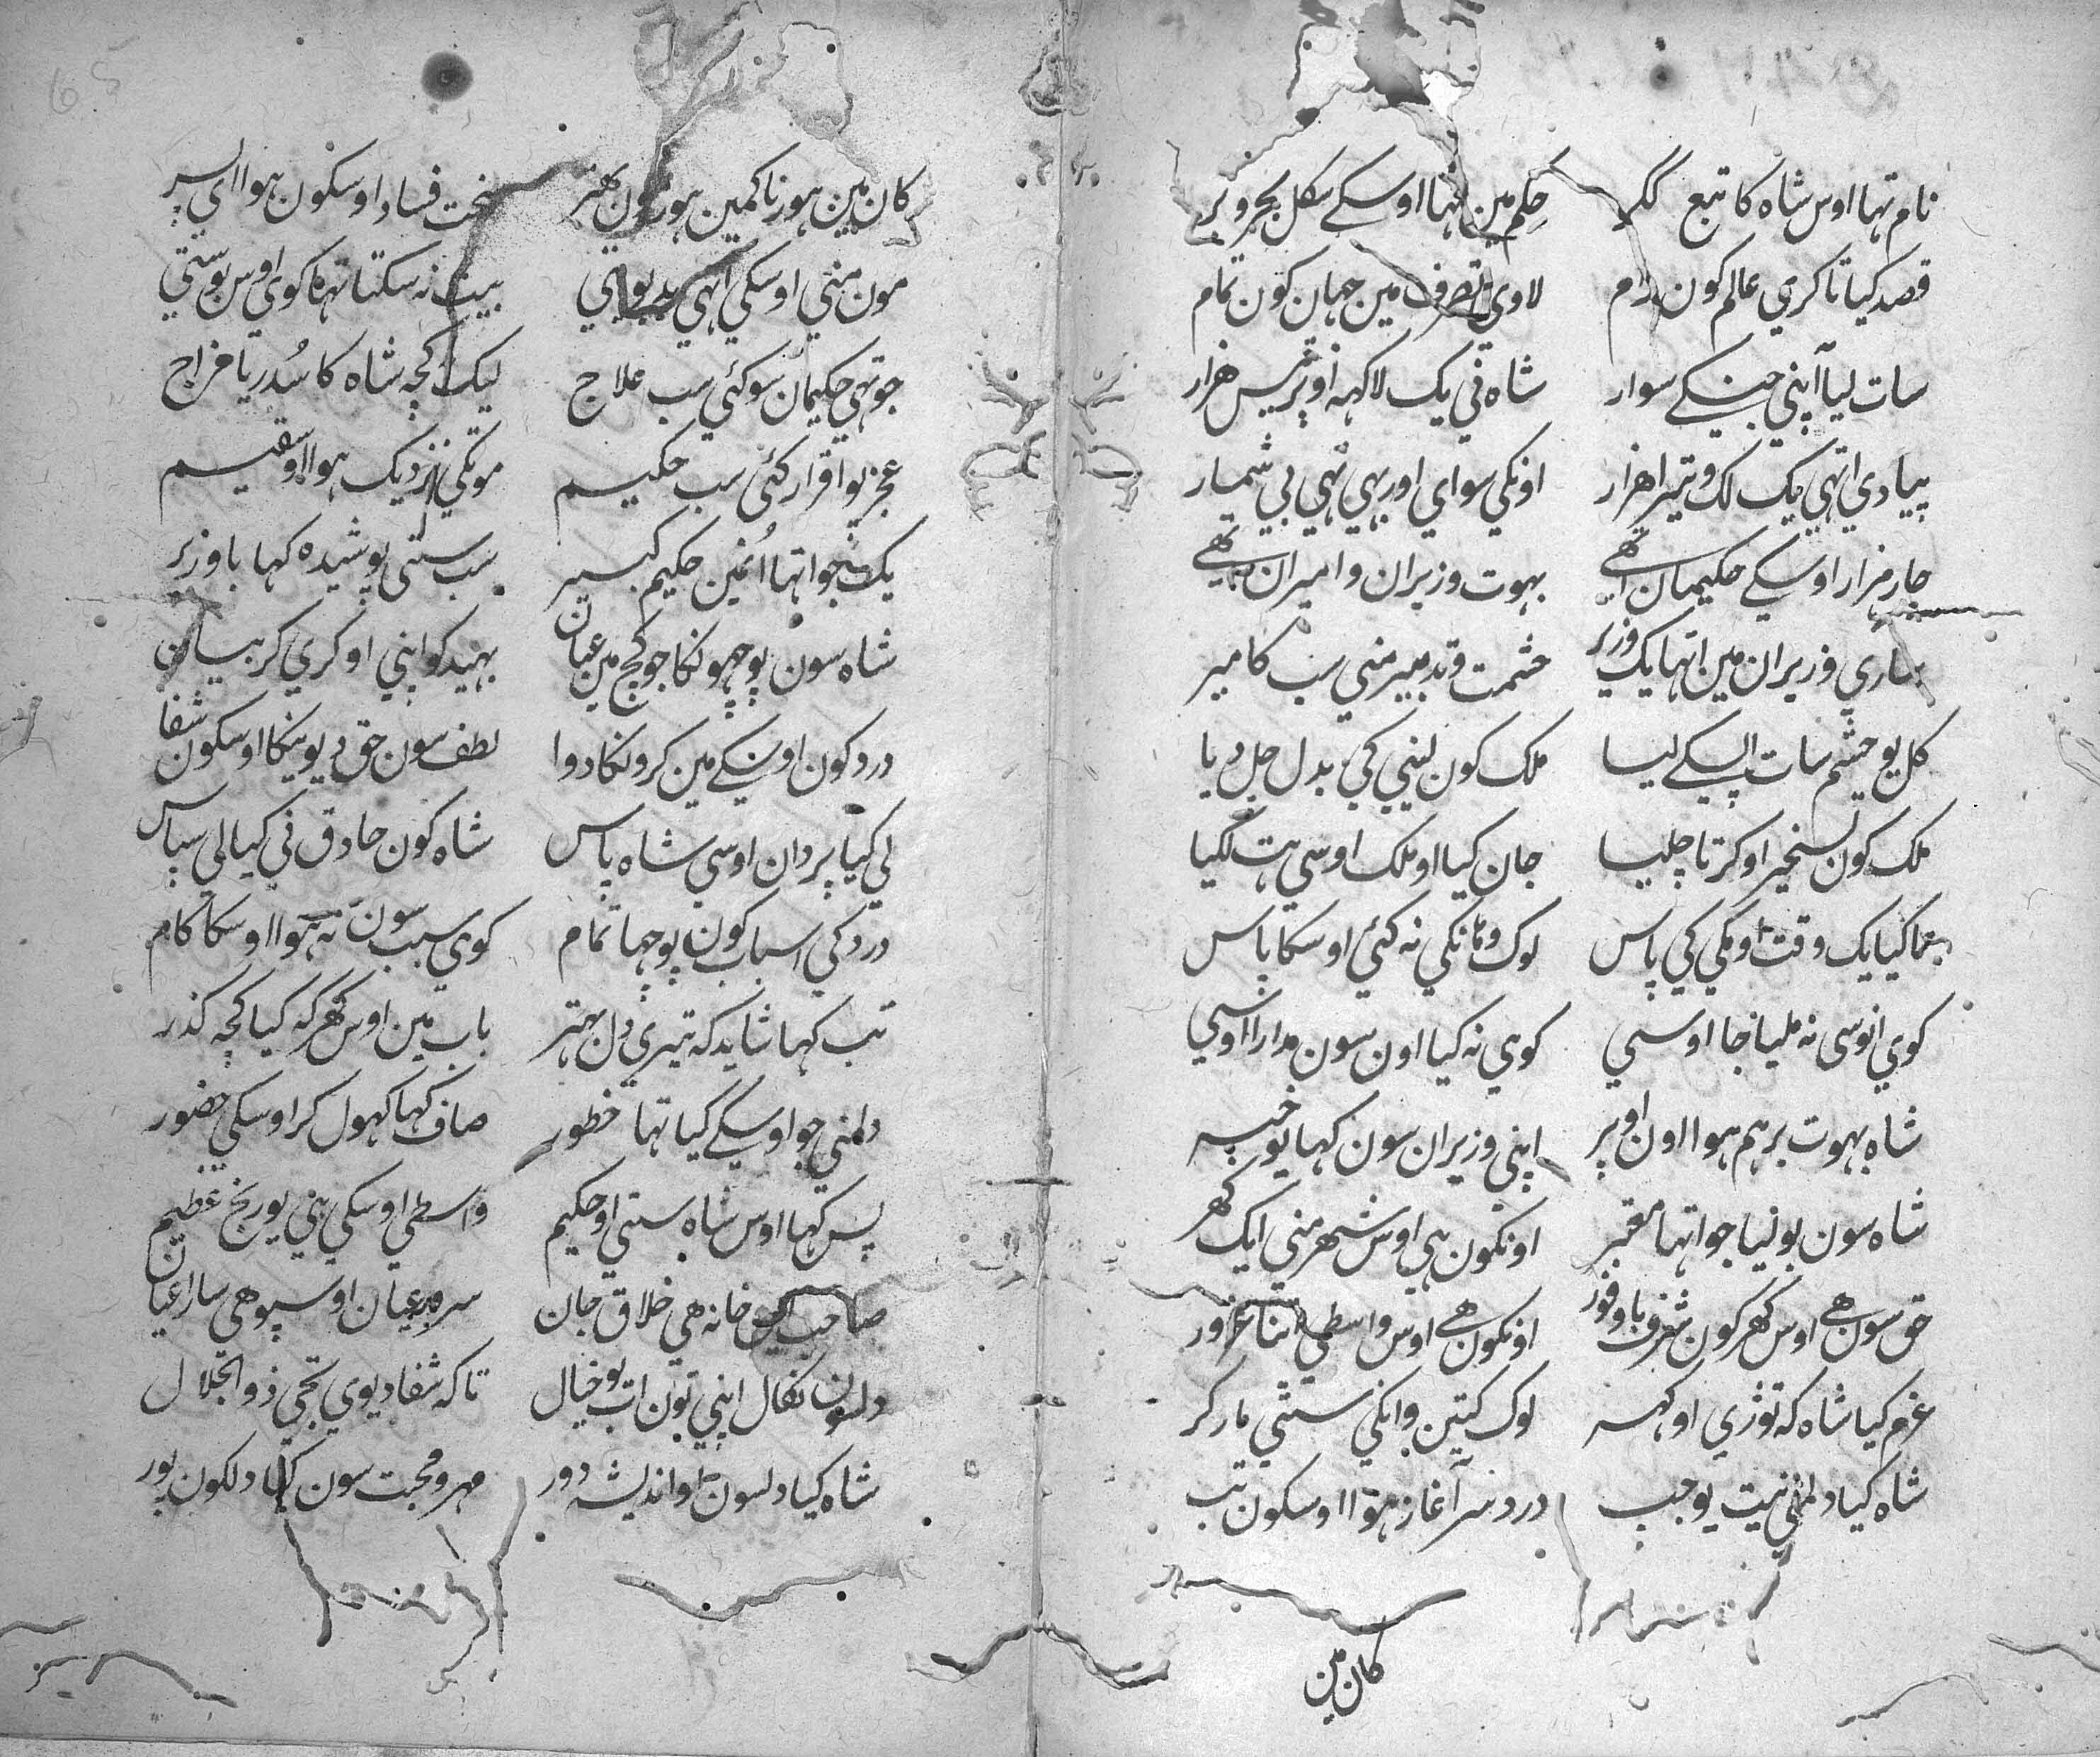 نام تہا اوس شاہ کا تبع مگر حکم مین تہا اوسکے سکل بحر و بر
قصد کیا تا کری عالم کون رام لاوی تصرف مین جہان کون تمام
سات لیا اپنی جنکے سوار شاہ نی یک لاکہہ اوپر تیس ہزار
پیادی اتہی یک لک و تیرا ہزار اونکی سوای اور بہی تہی بی شمار
چار ہزار اوسکے حکیمان اتہے بہوت وزیران و امیران تہے
ساری وزیران مین اتہا یک وزیر حشمت و تدبیر منی سب کا میر
کل یو حشم سات اپسکے لیا ملک کون لینی کی بدل چل دیا
ملک کون تسخیر او کرتا چلیا جان کیا او ملک اوسی ہت لگیا
گیا یک وقت او مکی کی پاس لوک وہانکی نہ کئی اوسکا پاس
کوی انو سی نہ ملیا جا اوسی کوی نہ کیا اون سون مدارا اوسی
شاہ بہوت برہم ہوا اون اوپر اپنی وزیران سون کہا یو خبر
شاہ سون بولیا جو اتہا معتبر اونکون ہی اوس شہر منی ایک گھر
حق سون ہے اوس گھر کون شرف با وفور اونکون ہے اوس واسطی اتنا غرور
عزم کیا شاہ کہ توڑی او گہر لوک کیتن وانکی ستی مار کر
شاہ کیا دلمنی نیت یو جب درد سر آغاز ہوا اوسکون تب
کان مین
کان مین ہور ناکمین ہور مون بھتر سخت فساد اوسکون ہوا ای پسر
مون منی اوسکی اتہی بدبوای بیت نہ سکتا تہا کوی اوس بو ستی
جو تہی حکیمان سو کئی سب علاج لیک کچہ شاہ کا سدریا مزاج
عجز یو اقرار کئی سب حکیم موتکی نزدیک ہوا او سقیم
یک جو اتہا اُنمین حکیم کبیر سب ستی پوشیدہ کہا با وزیر
شاہ سون پوچہونکا جو کچ مین عیان بہید کو اپنی او کری کر بیان
درد کون اوسکے مین کرونکا دوا لطف سون حق دیویگا اوسکون شفا
لی کیا پردان اوسی شاہ پاس شاہ کون حاذق نی کیا لی سپاس
درد کی اسباب کون پوچہا تمام کوی سبب سون نہ ہوا اوسکا کام
تب کہا شاید کہ تیری دل بہتر باب مین اوس گھر کہ کیا کچہ گذر
دلمنی جو اوسکے گیا تہا خطور صاف کہا کہول کر اوسکی حضور
پس کہا اوس شاہ ستی او حکیم واسطی اوسکی ہی یو رنج عظیم
صاحب خانہ ھی خلاق جان سر عیان اوسپو ھی سارا عیان
دلسون نکال اپنی تون اب یو خیال تا کہ شفا دیوی تجی ذوالجلال
شاہ کیا دلسون او اندیشہ دور مہر و محبت سون کیا دلکون پور